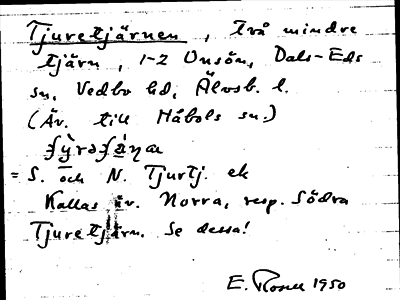 Tjuretjärnen, två mindre
tjärn, 1-2 Unsön, Dals-Eds
sn, Vedbo hd, Älvsb. l.
(Äv. till Håbols sn.)
= S. och N. Tjurtj. ek
Kallas äv. Norra, resp. Södra
Tjuretjärn. Se dessa!
E. 1950